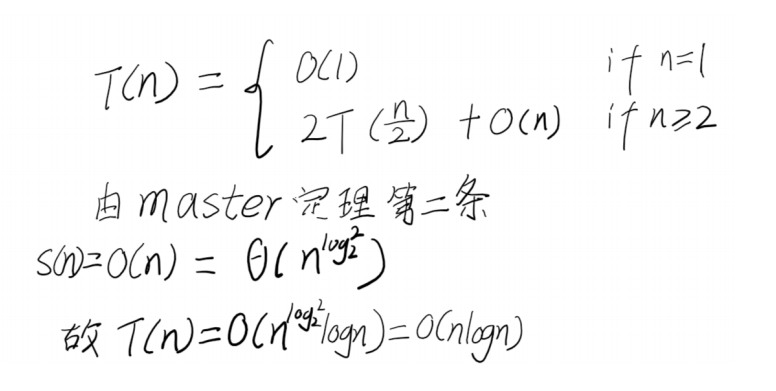 T(n) = { O(1) if n=1
2T(n/2) + O(n) if n≥2
由 master 定理 第二条
S(n)=O(n) = θ(n^{log_2^2})
故 T(n)=O(n^{log_2^2}logn)=O(nlogn)